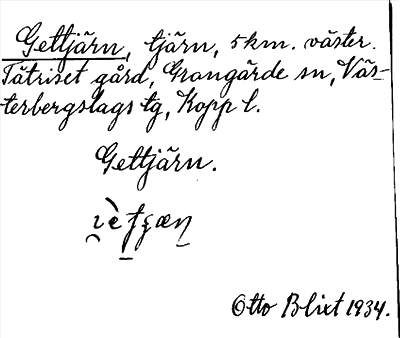 Gettjärn, tjärn, 5 km. väster.
Tätriset gård, Grangärde sn, Väs-
terbergslags tg, Kopp l.
Gettjärn.
Otto Blixt 1934.